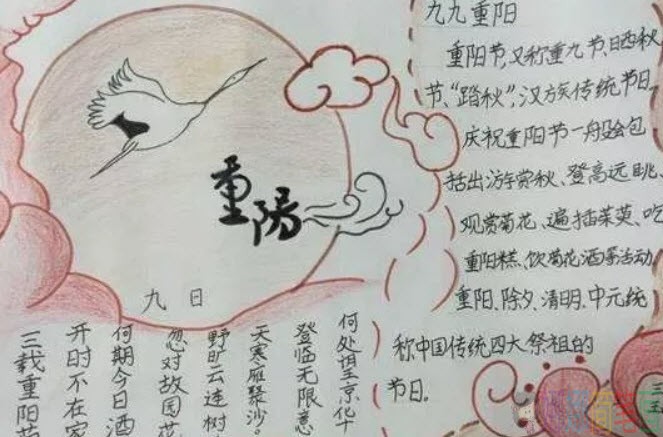 重阳
九日
三载重阳
开时不在家
何期今日酒
忽对故园花
野旷云连树
天寒雁聚沙。
登临无限意
何处望京华
九九重阳
重阳节,又称重九节、晒秋
节、“踏秋”,汉族传统节日
庆祝重阳节一般会包
括出游赏秋、登高远眺、
观赏菊花、遍插茱萸、吃
重阳糕、饮菊花酒等活动
重阳、除夕、清明、中元统
称中国传统四大祭祖的
节日.